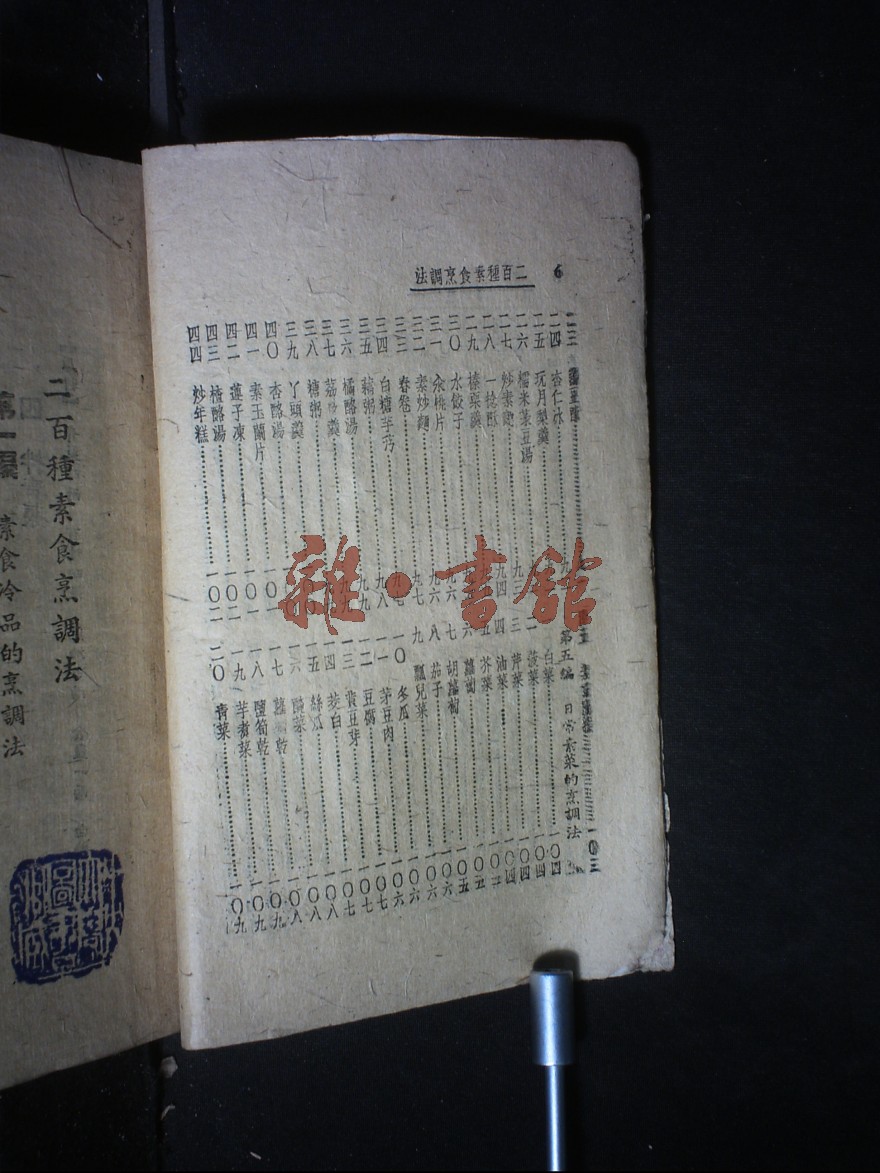 6
二百種素食烹調法
二四 杏仁冰
二五 玩月梨羹
二六 糯米菉豆湯 九
二七 炒素麵 九
二八 一棱酥
二九 榛栗羹 九四
三〇 水餃子 九
三一 汆桃片 九六
三二 素炒麵 九六
三三 春卷 九七
三四 白糖芋艿 九八
三五 藕粥 九九
三六 橘酪湯 九九
三七 荔枝羹
三八 糖粥
三九 丫頭羹
四〇 杏酪湯 一〇
四一 素玉蘭片 一〇一
四二 蓮子凍 一〇一
四三 楂酪湯 一〇二
四四 炒年糕 一〇二
一〇三
第五編 日常素菜的烹調法
白菜 一〇四
二 菠菜 一〇四
三 芹菜 一〇四
四 油菜 一〇四
五 芥菜 一〇五
六 蘿蔔 一〇五
七 胡蘿蔔 一〇六
八 茄子 一〇六
九 瓢兒菜 一〇六
一〇 冬瓜 一〇六
一一 芽豆肉 一〇七
一二 豆腐 一〇七
一三 黃豆芽 一〇七
一四 茭白 一〇八
一五 絲瓜 一〇八
一六 菜 一〇八
一七 蘿蔔乾 一〇九
一八 鹽筍乾 一〇九
一九 芋艿菜 一〇九
二〇 青菜 一〇九
二百種素食烹調法
第一編 素食冷品的烹調法
雜·書館